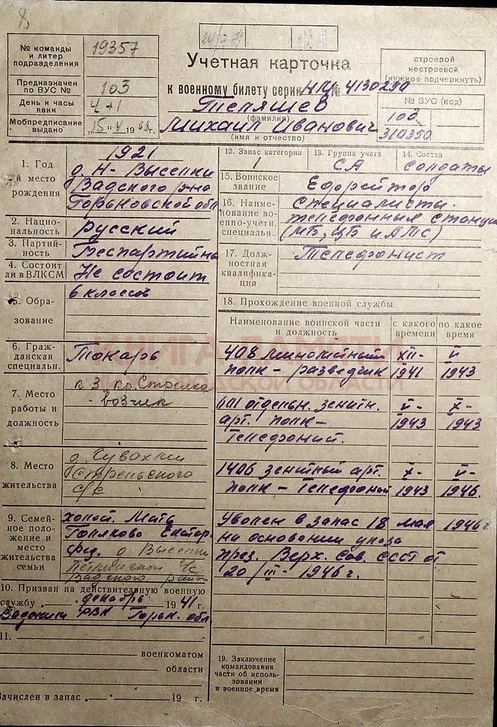 № команды
и литер
подразделения
19357
Предназначен
по ВУС №
103
День и часы
явки
4+1
Мобпредписание
выдано
Учетная карточка
к военному билету серии НЦ № 4130290
Тепяшев
(фамилия)
Михаил Иванович
(имя и отчество)
строевой
нестроевой
(нужное подчеркнуть)
№ ВУС (код)
103
310350
1. Год
и место
рождения
1921
д. Н-Высепки
Вадского р-на
Горьковской обл
2. Нацио-
нальность
русский
3. Партий-
ность
Беспартийный
4. Состоит
ли в ВЛКСМ
Не состоит
5. Обра-
зование
6 классов
6. Граж-
данская
специальн.
Токарь
7. Место
работы и
должность
к-з кр. Стрелка
возчик
8. Место
жительства
д. Чувахлей
с/с
9. Семей-
ное по-
ложение и
место
жительства
семьи
холост. Мать
10. Призван на действительную военную
службу декабрь 1941 г.
Вадским РВК Горьк. обл
11.
военкоматом
области
Зачислен в запас 19 г.
12. Запас категории
1
13. Группа учета
СА
14. Состав
солдаты
15. Воинское
звание
Ефрейтор
16. Наиме-
нование во-
енно-учетн.
специальн.
специалисты
телефонных станций
(МБ, ЦБ и АТС)
17. Долж-
ностная
квалифика-
ция
Телефонист
18. Прохождение военной службы
Наименование воинской части
и должность
с какого
времени
по какое
время
408 минометный
полк - разведчик
XII-
1941
V
1943
601 отдельн. зенитн.
арт. полк -
Телефонист.
V-
1943
X-
1943
1406 зенитный арт.
полк - Телефонист
X-
1943
V-
1946.
Уволен в запас 18 мая 1946 г
на основании указа
през. Верх. сов. ссср от
20/III-1946 г.
19. Заключение
командования
части об исполь-
зовании
в военное время